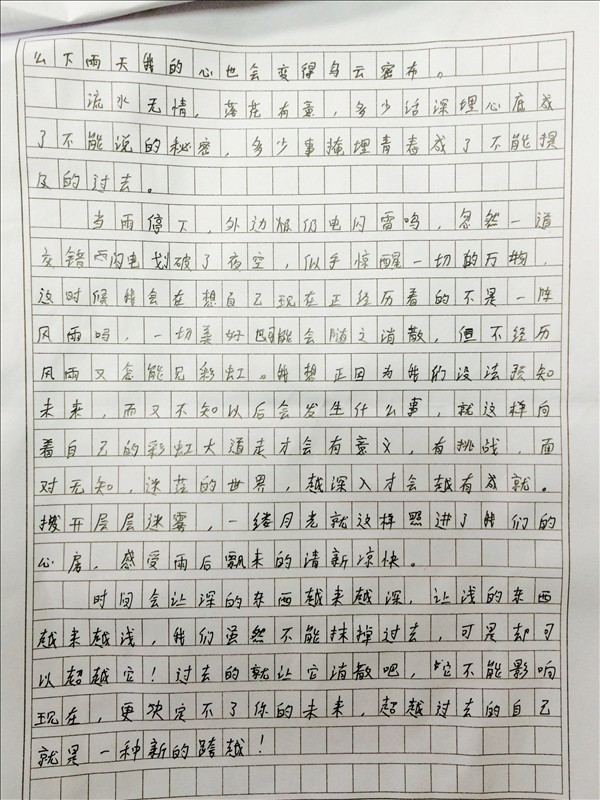 么下雨天我的心也会变得乌云密布。
流水无情，落花有意，多少话深埋心底成
了不能说的秘密，多少事掩埋青春成了不能提
及的过去。
当雨停下，外边依仍电闪雷鸣，忽然一道
交错的闪电划破了夜空，似乎惊醒一切的万物，
这时候我会在想自己现在正经历着的不是一阵
风雨吗，一切美好可能会随之消散，但不经历
风雨又怎能见彩虹。我想正因为我们没法预知
未来，而又不知以后会发生什么事，就这样向
着自己的彩虹大道走才会有意义，有挑战，面
对无知，迷茫的世界，越深入才会越有成就。
拨开层层迷雾，一缕月光就这样照进了我们的
心房，感受雨后飘来的清新凉快。
时间会让深的东西越来越深，让浅的东西
越来越浅，我们虽然不能抹掉过去，可是却可
以超越它！过去的就让它消散吧，它不能影响
现在，更决定不了你的未来，超越过去的自己
就是一种新的跨越！